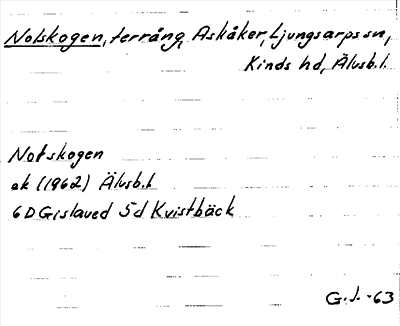 Notskogen, terräng, Askåker, Ljungsarps sn,
Kinds hd, Älvsb.l.
Notskogen
ek (1962) Älvsb.l
6D Gislaved 5d Kvistbäck
G.J. -63